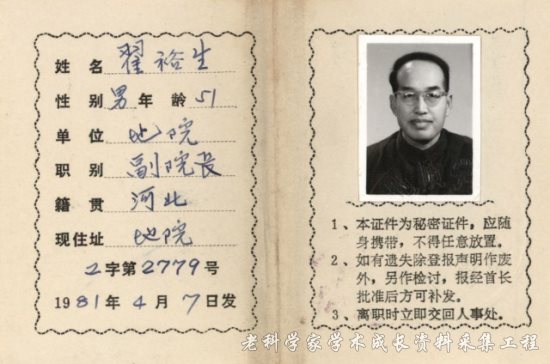 姓名 翟裕生
性别 男 年龄 51
单位 地院
职别 副院长
籍贯 河北
现住址 地院
工字第2779号
1981年4月7日发
1、本证件为秘密证件，应随
身携带，不得任意放置。
2、如有遗失除登报声明作废
外，另作检讨，报经首长
批准后方可补发。
3、离职时立即交回人事处。
老科学家学术成长资料采集工程